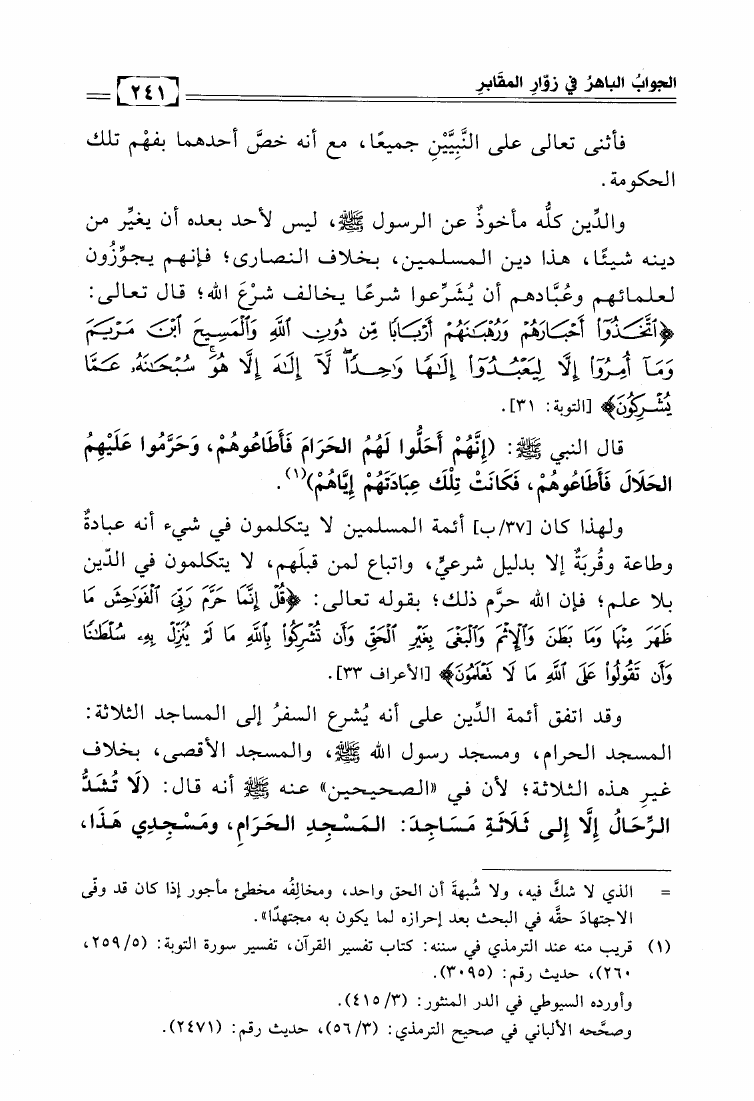 الجوابُ الباهرُ في زوّارِ المقَابرِ
٢٤١
فأثنى تعالى على النَّبِيَّيْنِ جميعًا، مع أنه خصَّ أحدهما بفهْم تلك
الحكومة.
والدِّين كلُّه مأخوذٌ عن الرسول ﷺ، ليس لأحد بعده أن يغيِّر من
دينه شيئًا، هذا دين المسلمين، بخلاف النصارى؛ فإنهم يجوِّزُون
لعلمائهم وعُبَّادهم أن يُشَرِّعوا شرعًا يخالف شرْعَ الله؛ قال تعالى:
﴿ٱتَّخَذُوٓا۟ أَحْبَارَهُمْ وَرُهْبَـٰنَهُمْ أَرْبَابًا مِّن دُونِ ٱللَّهِ وَٱلْمَسِيحَ ٱبْنَ مَرْيَمَ
وَمَآ أُمِرُوٓا۟ إِلَّا لِيَعْبُدُوٓا۟ إِلَـٰهًا وَٰحِدًا ۖ لَّآ إِلَـٰهَ إِلَّا هُوَ ۚ سُبْحَـٰنَهُۥ عَمَّا
يُشْرِكُونَ﴾ [التوبة: ٣١].
قال النبي ﷺ: (إِنَّهُمْ أَحَلُّوا لَهُمُ الحَرَامَ فَأَطَاعُوهُمْ، وَحَرَّمُوا عَلَيْهِمُ
الحَلَالَ فَأَطَاعُوهُمْ، فَكَانَتْ تِلْكَ عِبَادَتَهُمْ إِيَّاهُمْ)(١).
ولهذا كان [٣٧/ب] أئمة المسلمين لا يتكلمون في شيء أنه عبادةٌ
وطاعة وقُربَةٌ إلا بدليل شرعيٍّ، واتباع لمن قبلَهم، لا يتكلمون في الدّين
بلا علم؛ فإن الله حرَّم ذلك؛ بقوله تعالى: ﴿قُلْ إِنَّمَا حَرَّمَ رَبِّىَ ٱلْفَوَٰحِشَ مَا
ظَهَرَ مِنْهَا وَمَا بَطَنَ وَٱلْإِثْمَ وَٱلْبَغْىَ بِغَيْرِ ٱلْحَقِّ وَأَن تُشْرِكُوا۟ بِٱللَّهِ مَا لَمْ يُنَزِّلْ بِهِۦ سُلْطَـٰنًا
وَأَن تَقُولُوا۟ عَلَى ٱللَّهِ مَا لَا تَعْلَمُونَ﴾ [الأعراف ٣٣].
وقد اتفق أئمة الدِّين على أنه يُشرع السفرُ إلى المساجد الثلاثة:
المسجد الحرام، ومسجد رسول الله ﷺ، والمسجد الأقصى، بخلاف
غيرِ هذه الثلاثة؛ لأن في «الصحيحين» عنه ﷺ أنه قال: (لَا تُشَدُّ
الرِّحَالُ إِلَّا إِلى ثَلَاثَةِ مَسَاجِدَ: المَسْجِدِ الحَرَامِ، ومَسْجِدِي هَذَا،
= الذي لا شكَّ فيه، ولا شُبهةَ أن الحق واحد، ومخالِفُه مخطئ مأجور إذا كان قد وفّى
الاجتهادَ حقَّه في البحث بعد إحرازه لما يكون به مجتهدًا».
(١) قريب منه عند الترمذي في سننه: كتاب تفسير القرآن، تفسير سورة التوبة: (٢٥٩/٥،
٢٦٠)، حديث رقم: (٣٠٩٥).
وأورده السيوطي في الدر المنثور: (٤١٥/٣).
وصحَّحه الألباني في صحيح الترمذي: (٥٦/٣)، حديث رقم: (٢٤٧١).